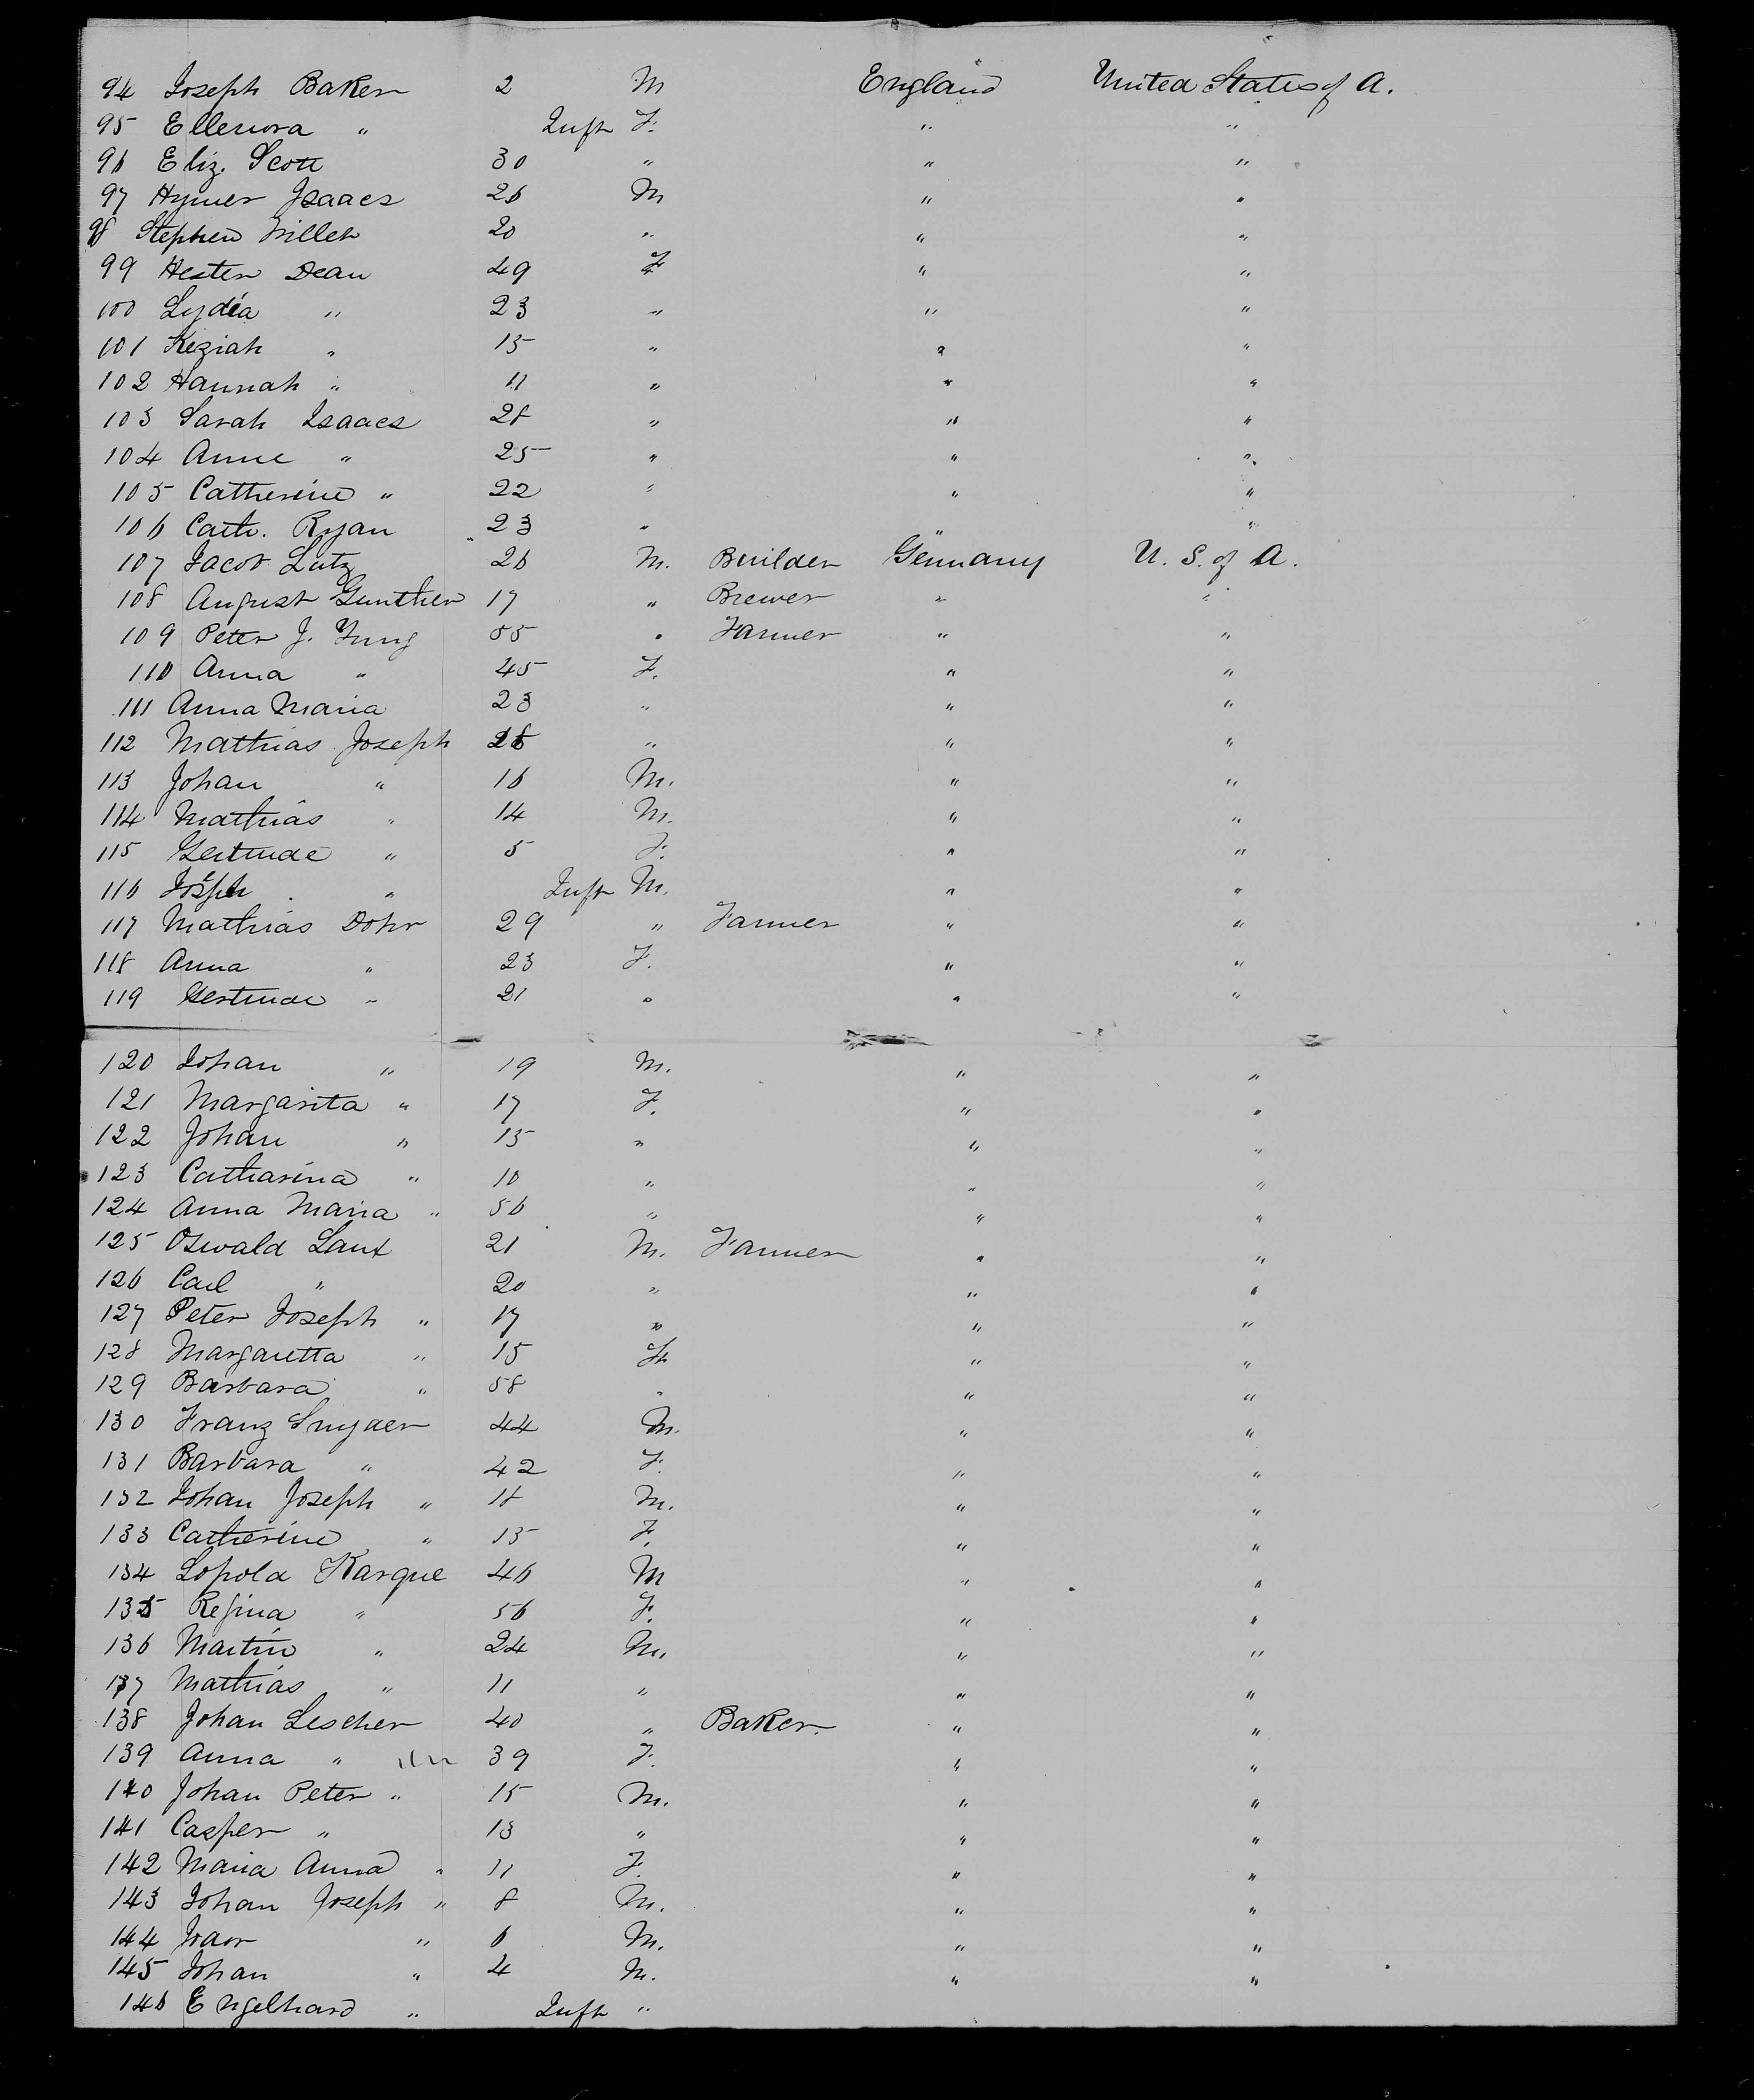 94 Joseph Baker 2 M England United States of A.
95 Ellenora " Inft F. " "
96 Eliz. Scott 30 " " "
97 Hymer Isaacs 26 M " "
98 Stephen 20 " " "
99 Hester Dean 49 F " "
100 Lydia " 23 " " "
101 Keziah " 15 " " "
102 Hannah " 11 " " "
103 Sarah Isaacs 28 " " "
104 Anne " 25 " " "
105 Catherine " 22 " " "
106 Cath. Ryan 23 " " "
107 Jacob Lutz 26 M. Builder Germany U. S. of A.
108 August Gunther 17 " Brewer " "
109 Peter J. Jung 55 " Farmer " "
110 Anna " 45 F. " "
111 Anna Maria 23 " " "
112 Mathias Joseph 18 " " "
113 Johan " 16 M. " "
114 Mathias " 14 M. " "
115 Gertrude " 5 F. " "
116 Joseph " Inft M. " "
117 Mathias Dohr 29 " Farmer " "
118 Anna " 23 F. " "
119 Gertrude " 21 " " "
120 Johan " 19 M. " "
121 Margarita " 17 F. " "
122 Johan " 15 " " "
123 Catharina " 10 " " "
124 Anna Maria " 56 " " "
125 Oswald Laux 21 M. Farmer " "
126 Carl " 20 " " "
127 Peter Joseph " 17 " " "
128 Margaretta " 15 F " "
129 Barbara " 58 " " "
130 Franz Snyder 44 M. " "
131 Barbara " 42 F. " "
132 Johan Joseph " 18 M. " "
133 Catherine " 15 F. " "
134 Lopold Karque 46 M " "
135 Regina " 56 F. " "
136 Martin " 24 M. " "
137 Mathias " 11 " " "
138 Johan Lescher 40 " Baker. " "
139 Anna " 39 F. " "
140 Johan Peter " 15 M. " "
141 Casper " 13 " " "
142 Maria Anna " 11 F. " "
143 Johan Joseph " 8 M. " "
144 " 6 M. " "
145 Johan " 4 M. " "
146 Engelhard " Inft "